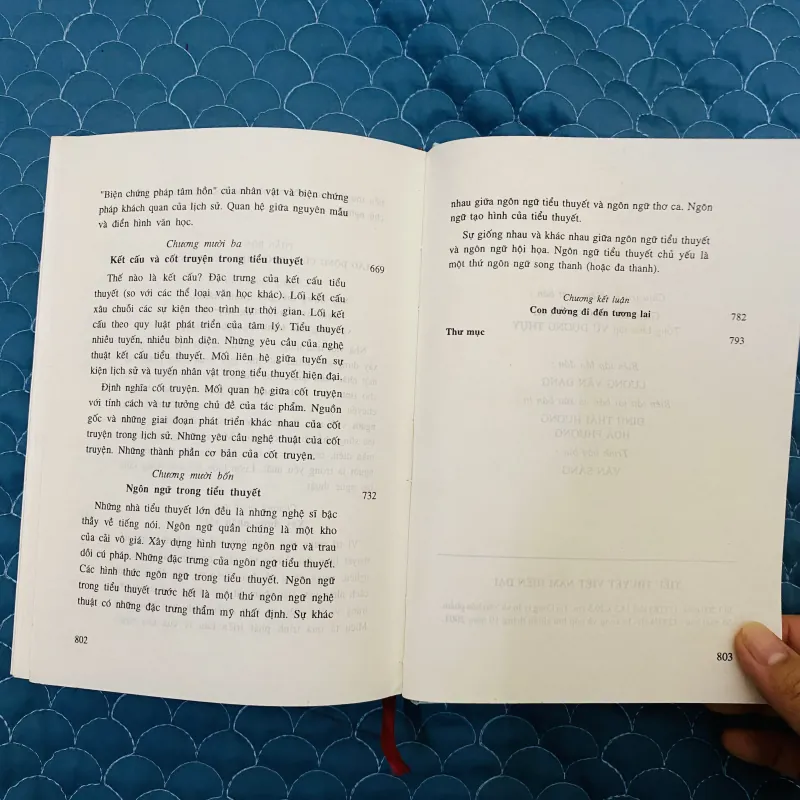 "Biện chứng pháp tâm hồn" của nhân vật và biện chứng
pháp khách quan của lịch sử. Quan hệ giữa nguyên mẫu
và điển hình văn học.
Chương mười ba
Kết cấu và cốt truyện trong tiểu thuyết 669
Thế nào là kết cấu? Đặc trưng của kết cấu tiểu
thuyết (so với các thể loại văn học khác). Lối kết cấu
xâu chuỗi các sự kiện theo trình tự thời gian. Lối kết
cấu theo quy luật phát triển của tâm lý. Tiểu thuyết
nhiều tuyến, nhiều bình diện. Những yêu cầu của nghệ
thuật kết cấu tiểu thuyết. Mối liên hệ giữa tuyến sự
kiện lịch sử và tuyến nhân vật trong tiểu thuyết hiện đại.
Định nghĩa cốt truyện. Mối quan hệ giữa cốt truyện
với tính cách và tư tưởng chủ đề của tác phẩm. Nguồn
gốc và những giai đoạn phát triển khác nhau của cốt
truyện trong lịch sử. Những yêu cầu nghệ thuật của cốt
truyện. Những thành phần cơ bản của cốt truyện.
Chương mười bốn
Ngôn ngữ trong tiểu thuyết 732
Những nhà tiểu thuyết lớn đều là những nghệ sĩ bậc
thầy về tiếng nói. Ngôn ngữ quần chúng là một kho
của cải vô giá. Xây dựng hình tượng ngôn ngữ và trau
dồi cú pháp. Những đặc trưng của ngôn ngữ tiểu thuyết.
Các hình thức ngôn ngữ trong tiểu thuyết. Ngôn ngữ
trong tiểu thuyết trước hết là một thứ ngôn ngữ nghệ
thuật có những đặc trưng thẩm mỹ nhất định. Sự khác
802
nhau giữa ngôn ngữ tiểu thuyết và ngôn ngữ thơ ca. Ngôn
ngữ tạo hình của tiểu thuyết.
Sự giống nhau và khác nhau giữa ngôn ngữ tiểu thuyết
và ngôn ngữ hội họa. Ngôn ngữ tiểu thuyết chủ yếu là
một thứ ngôn ngữ song thanh (hoặc đa thanh).
Chương kết luận
Con đường đi đến tương lai 782
Thư mục 793
803